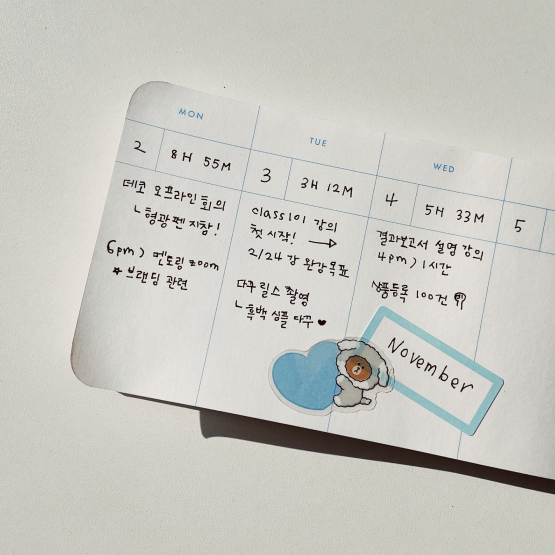 MON
2
8H 55M
데코 오프라인 회의
ㄴ형광펜 지참!
6pm) 멘토링 zoom
★ 브랜딩 관련
TUE
3
3H 12M
class101 강의
첫 시작! →
2/24강 완강목표
다꾸 릴스 촬영
ㄴ흑백 심플 다꾸 ♥
WED
4
5H 33M
결과보고서 설명 강의
4pm) 1시간
상품등록 100건
5
November